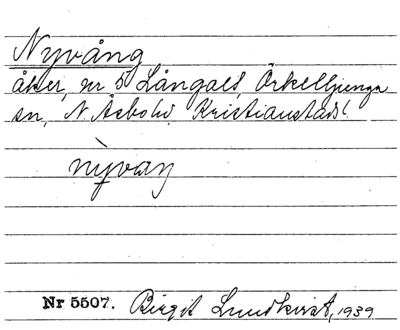 Nyvång
åker, nr 5 Långalt, Örkelljunga
sn, N. Åsbohd Kristianstads l.
nỳvaŋ
Nr 5507. Birgit Lundkvist, 1939